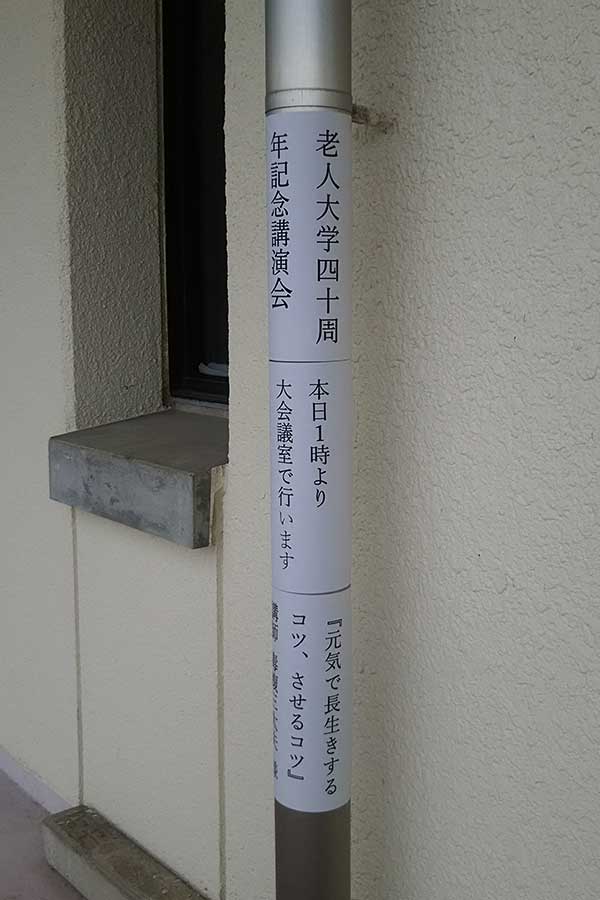 老人大学四十周
年記念講演会
本日1時より
大会議室で行います
『元気で長生きする
コツ、させるコツ』
講師